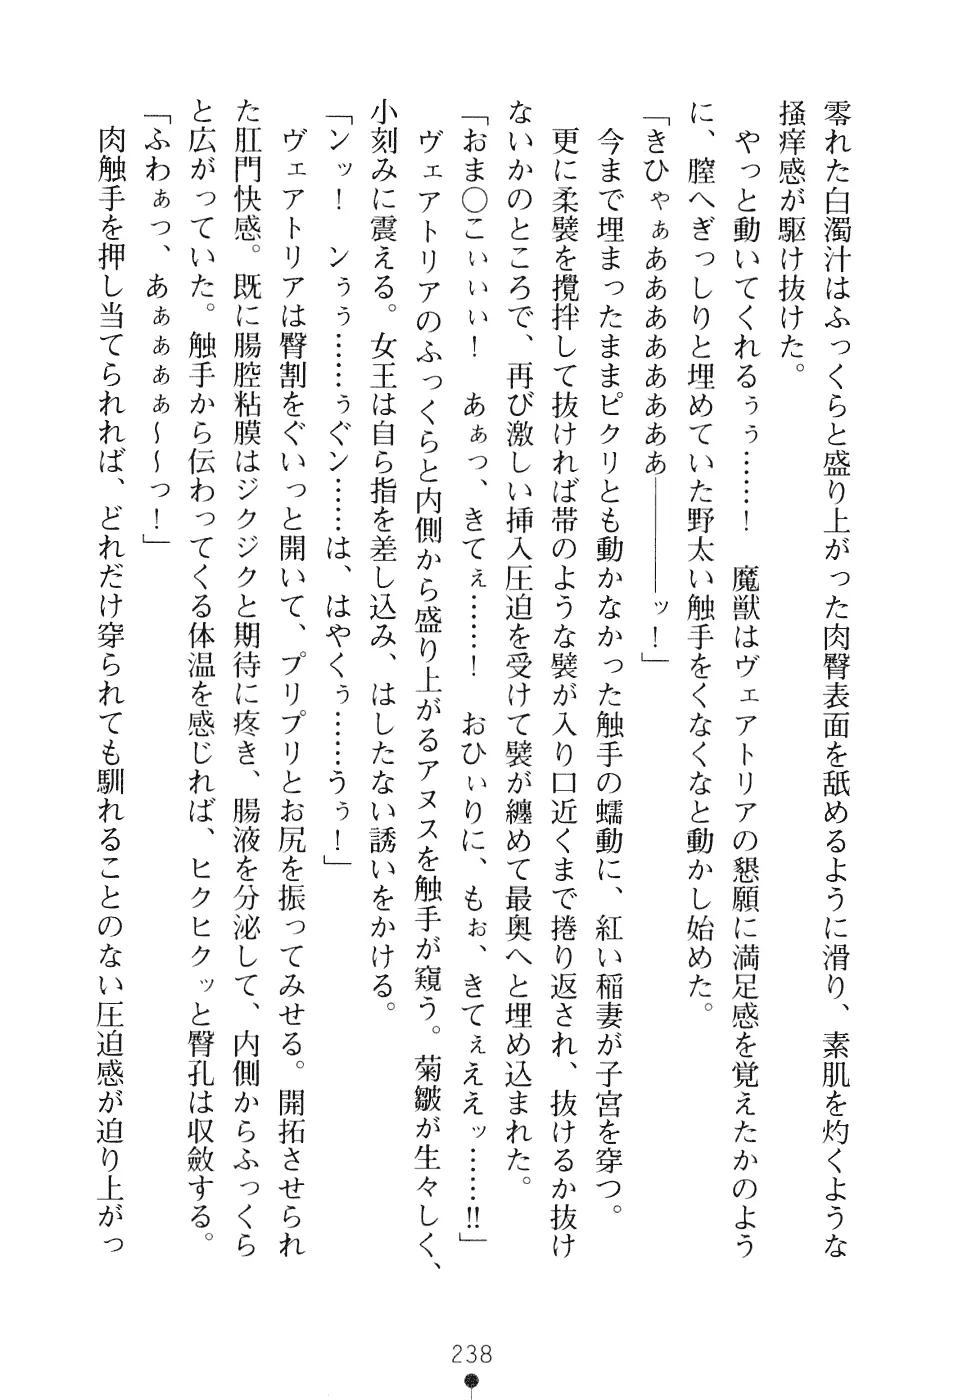 零れた白濁汁はふっくらと盛り上がった肉臀表面を舐めるように滑り、素肌を灼くような
掻痒感が駆け抜けた。
やっと動いてくれるぅぅ……！　魔獣はヴェアトリアの懇願に満足感を覚えたかのよう
に、膣へぎっしりと埋めていた野太い触手をくなくなと動かし始めた。
「きひゃぁあああああああ――――ッ！」
今まで埋まったままピクリとも動かなかった触手の蠕動に、紅い稲妻が子宮を穿つ。
更に柔襞を攪拌して抜ければ帯のような襞が入り口近くまで捲り返され、抜けるか抜け
ないかのところで、再び激しい挿入圧迫を受けて襞が纏めて最奥へと埋め込まれた。
「おま〇こぃぃぃ！　あぁっ、きてぇ……！　おひぃりに、もぉ、きてぇええッ……‼」
ヴェアトリアのふっくらと内側から盛り上がるアヌスを触手が窺う。菊皺が生々しく、
小刻みに震える。女王は自ら指を差し込み、はしたない誘いをかける。
「ンッ！　ンぅぅ……ぅグン……は、はやくぅ……うぅ！」
ヴェアトリアは臀割をぐいっと開いて、プリプリとお尻を振ってみせる。開拓させられ
た肛門快感。既に腸腔粘膜はジクジクと期待に疼き、腸液を分泌して、内側からふっくら
と広がっていた。触手から伝わってくる体温を感じれば、ヒクヒクッと臀孔は収斂する。
「ふわぁっ、あぁぁぁぁ～～っ！」
肉触手を押し当てられれば、どれだけ穿られても馴れることのない圧迫感が迫り上がっ
238